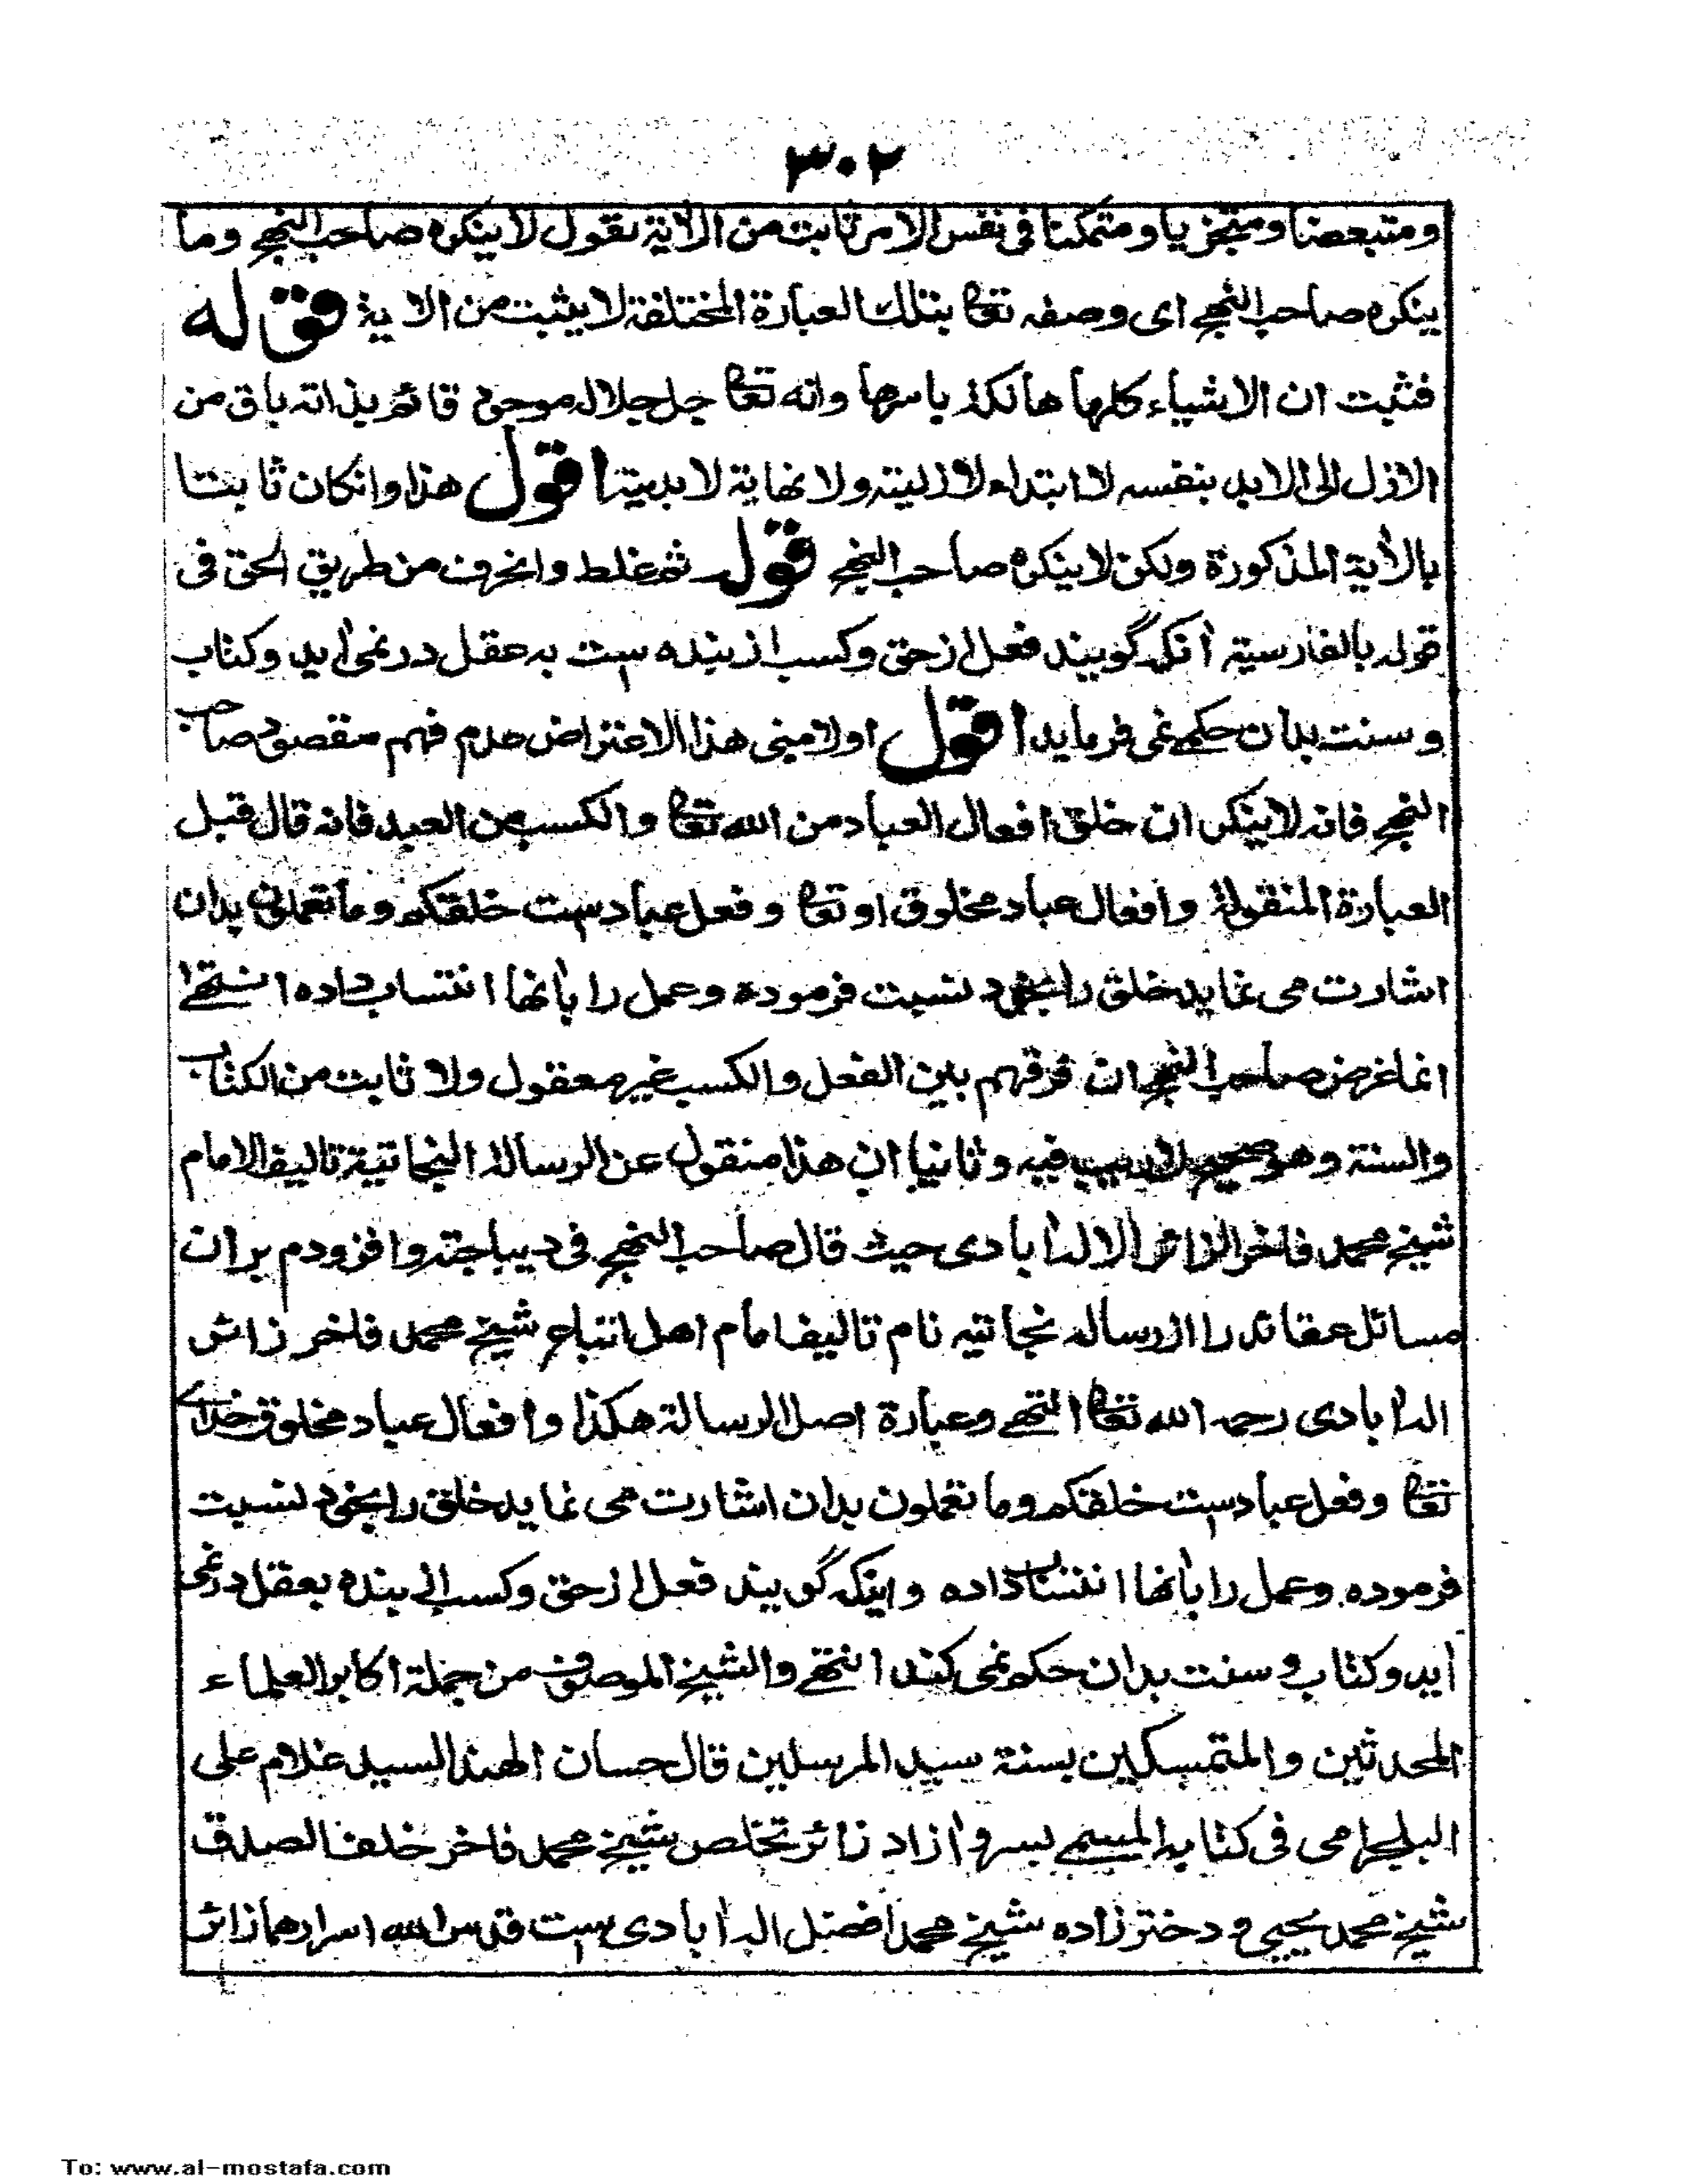 ٣٠٢
ومتبعضا ومتجزيا ومتمكنا فى نفس الامر ثابت من الآية نقول لا ينكره صاحب النهج وما
ينكره صاحب النهج اى وصفه تعا بتلك العبارة المختلفة لا يثبت من الاية قوله
فثبت ان الاشياء كلها هالكة باسرها وانه تعا جل جلاله موجود قائم بذاته باق من
الازل الى الابد بنفسه لا ابتداء لازليته ولا نهاية لابديته اقول هذا وانكان ثابتا
بالآية المذكورة ولكن لا ينكره صاحب النهج قوله ثم غلط وانحرف من طريق الحق فى
قوله بالفارسية آنكه گويند فعل از حق وكسب از بنده ست به عقل در نمى آيد وكتاب
وسنت بدان حكم نمى فرمايد اقول اولا مبنى هذا الاعتراض عدم فهم مقصود صاحب
النهج فانه لا ينكر ان خلق افعال العباد من الله تعا والكسب من العبد فانه قال قبل
العبارة المنقولة وافعال عباد مخلوق او تعا وفعل عباد ست خلقكم وما تعملون بدان
اشارت مى نمايد خلق را بخود نسبت فرموده وعمل را بانها انتساب داده انتهى
انما غرض صاحب النهج ان فرقهم بين الفعل والكسب غير معقول ولا ثابت من الكتاب
والسنة وهو صحيح لا ريب فيه وثانيا ان هذا منقول عن الرسالة النجاتية تاليف الامام
شيخ محمد فاخر الزائر الاله ابادى حيث قال صاحب النهج فى ديباجته وافزودم بران
مسائل عقائد را از رساله نجاتيه نام تاليف امام اهل اتباع شيخ محمد فاخر زائر
اله ابادى رحمه الله تعا انتهى وعبارة اصل الرسالة هكذا وافعال عباد مخلوق خداے
تعا وفعل عباد ست خلقكم وما تعملون بدان اشارت مى نمايد خلق را بخود نسبت
فرموده وعمل را بانها انتساب داده واينكه گويند فعل از حق وكسب از بنده بعقل در نمى
آيد وكتاب وسنت بدان حكم نمى كند انتهى والشيخ الموصوف من جملة اكابر العلماء
المحدثين والمتمسكين بسنة سيد المرسلين قال حسان الهند السيد غلام على
البلجرامى فى كتابه المسمى بسرو آزاد زائر تخلص شيخ محمد فاخر خلف الصدق
شيخ محمد يحيى و دختر زاده شيخ محمد افضل اله ابادى ست قدس الله اسرارهما زائر
To: www.al-mostafa.com